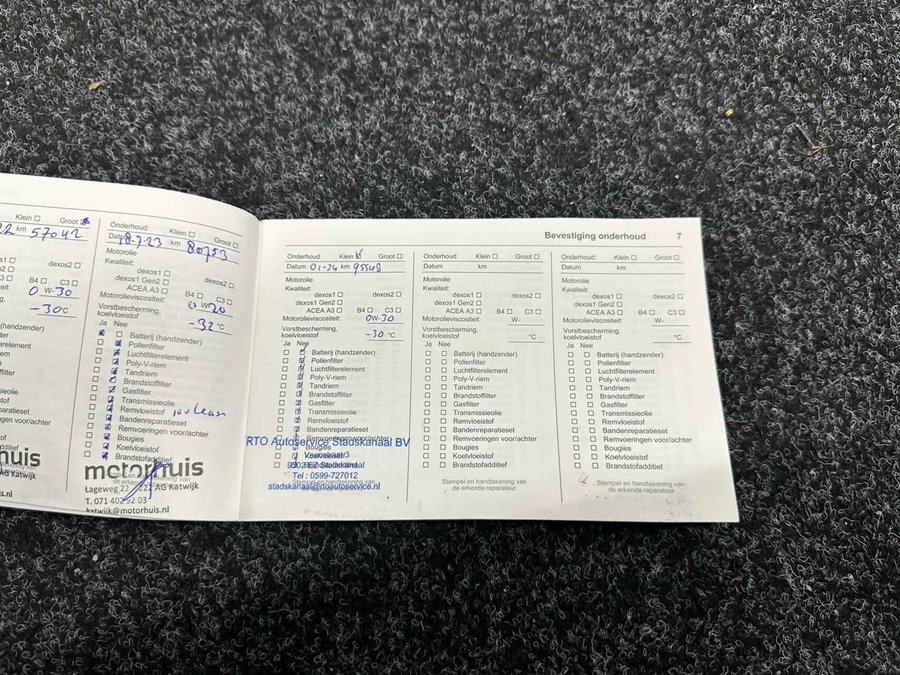 Klein ☐ Groot
22 km 57042
s1 ☐ dexos2 ☐
2 ☐
3 ☐ B4 ☐ C3 ☐
0 W-30
-30°C
(handzender)
erelement
em
e
paratieset
n voor/achter
ditief
huis
AG Katwijk
is.nl
Onderhoud: Klein ☐ Groot ☐
Datum 18-7-23 km 80753
Motorolie
Kwaliteit:
dexos1 ☐ dexos2 ☐
dexos1 Gen2 ☐
ACEA A3 ☐ B4 ☐ C3 ☐
Motorolieviscositeit: 0 W-20
Vorstbescherming,
koelvloeistof -32 °C
Ja Nee
Batterij (handzender)
Pollenfilter
Luchtfilterelement
Poly-V-riem
Tandriem
Brandstoffilter
Gasfilter
Transmissieolie
Remvloeistof
Bandenreparatieset
Remvoeringen voor/achter
Bougies
Koelvloeistof
Brandstofadditief
motorhuis
Lageweg 27, 2222 AG Katwijk
T. 071 402 92 03
katwijk@motorhuis.nl
Bevestiging onderhoud 7
Onderhoud: Klein ☑ Groot ☐
Datum 01-24 km 95548
Motorolie
Kwaliteit:
dexos1 ☐ dexos2 ☐
dexos1 Gen2 ☐
ACEA A3 ☐ B4 ☐ C3 ☐
Motorolieviscositeit: 0W-30
Vorstbescherming,
koelvloeistof -30 °C
Ja Nee
Batterij (handzender)
Pollenfilter
Luchtfilterelement
Poly-V-riem
Tandriem
Brandstoffilter
Gasfilter
Transmissieolie
Remvloeistof
Bandenreparatieset
Remvoeringen voor/achter
Bougies
Koelvloeistof
Brandstofadditief
RTO Autoservice Stadskanaal BV
Stadskanaal
Tel : 0599-727012
stadskanaal@rtoautoservice.nl
Onderhoud: Klein ☐ Groot ☐
Datum km
Motorolie
Kwaliteit:
dexos1 ☐ dexos2 ☐
dexos1 Gen2 ☐
ACEA A3 ☐ B4 ☐ C3 ☐
Motorolieviscositeit: W-
Vorstbescherming,
koelvloeistof °C
Ja Nee
☐ ☐ Batterij (handzender)
☐ ☐ Pollenfilter
☐ ☐ Luchtfilterelement
☐ ☐ Poly-V-riem
☐ ☐ Tandriem
☐ ☐ Brandstoffilter
☐ ☐ Gasfilter
☐ ☐ Transmissieolie
☐ ☐ Remvloeistof
☐ ☐ Bandenreparatieset
☐ ☐ Remvoeringen voor/achter
☐ ☐ Bougies
☐ ☐ Koelvloeistof
☐ ☐ Brandstofadditief
Stempel en handtekening van
de erkende reparateur
Onderhoud: Klein ☐ Groot ☐
Datum km
Motorolie
Kwaliteit:
dexos1 ☐ dexos2 ☐
dexos1 Gen2 ☐
ACEA A3 ☐ B4 ☐ C3 ☐
Motorolieviscositeit: W-
Vorstbescherming,
koelvloeistof °C
Ja Nee
☐ ☐ Batterij (handzender)
☐ ☐ Pollenfilter
☐ ☐ Luchtfilterelement
☐ ☐ Poly-V-riem
☐ ☐ Tandriem
☐ ☐ Brandstoffilter
☐ ☐ Gasfilter
☐ ☐ Transmissieolie
☐ ☐ Remvloeistof
☐ ☐ Bandenreparatieset
☐ ☐ Remvoeringen voor/achter
☐ ☐ Bougies
☐ ☐ Koelvloeistof
☐ ☐ Brandstofadditief
Stempel en handtekening van
de erkende reparateur